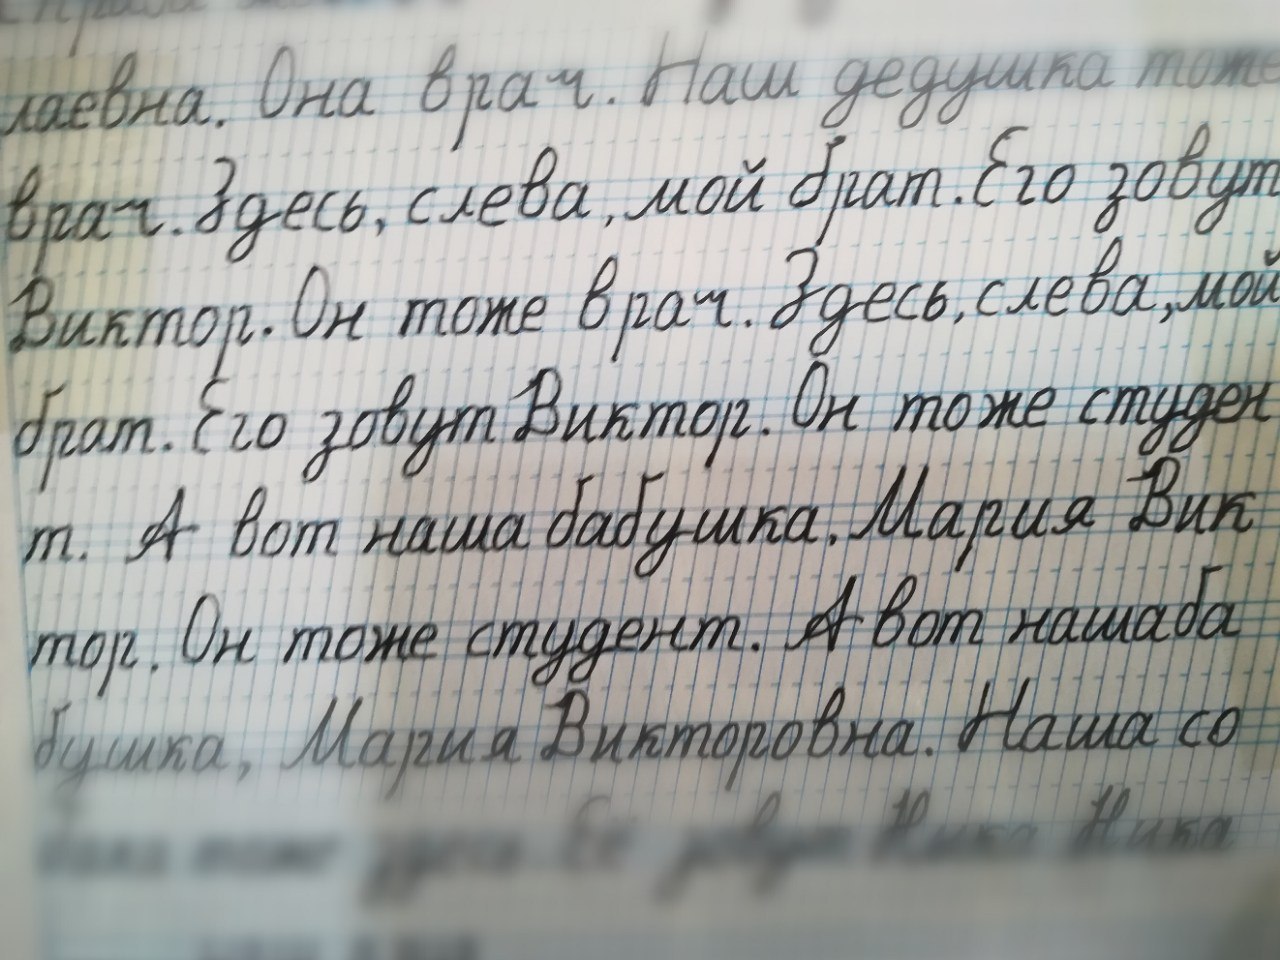 лаевна. Она врач. Наш дедушка тоже
врач. Здесь, слева, мой брат. Его зовут
Виктор. Он тоже врач. Здесь, слева, мой
брат. Его зовут Виктор. Он тоже студен
т. А вот наша бабушка. Мария Вик
тор. Он тоже студент. А вот наша ба
бушка, Мария Викторовна. Наша со
бака тоже здесь. Её зовут Ника. Ника